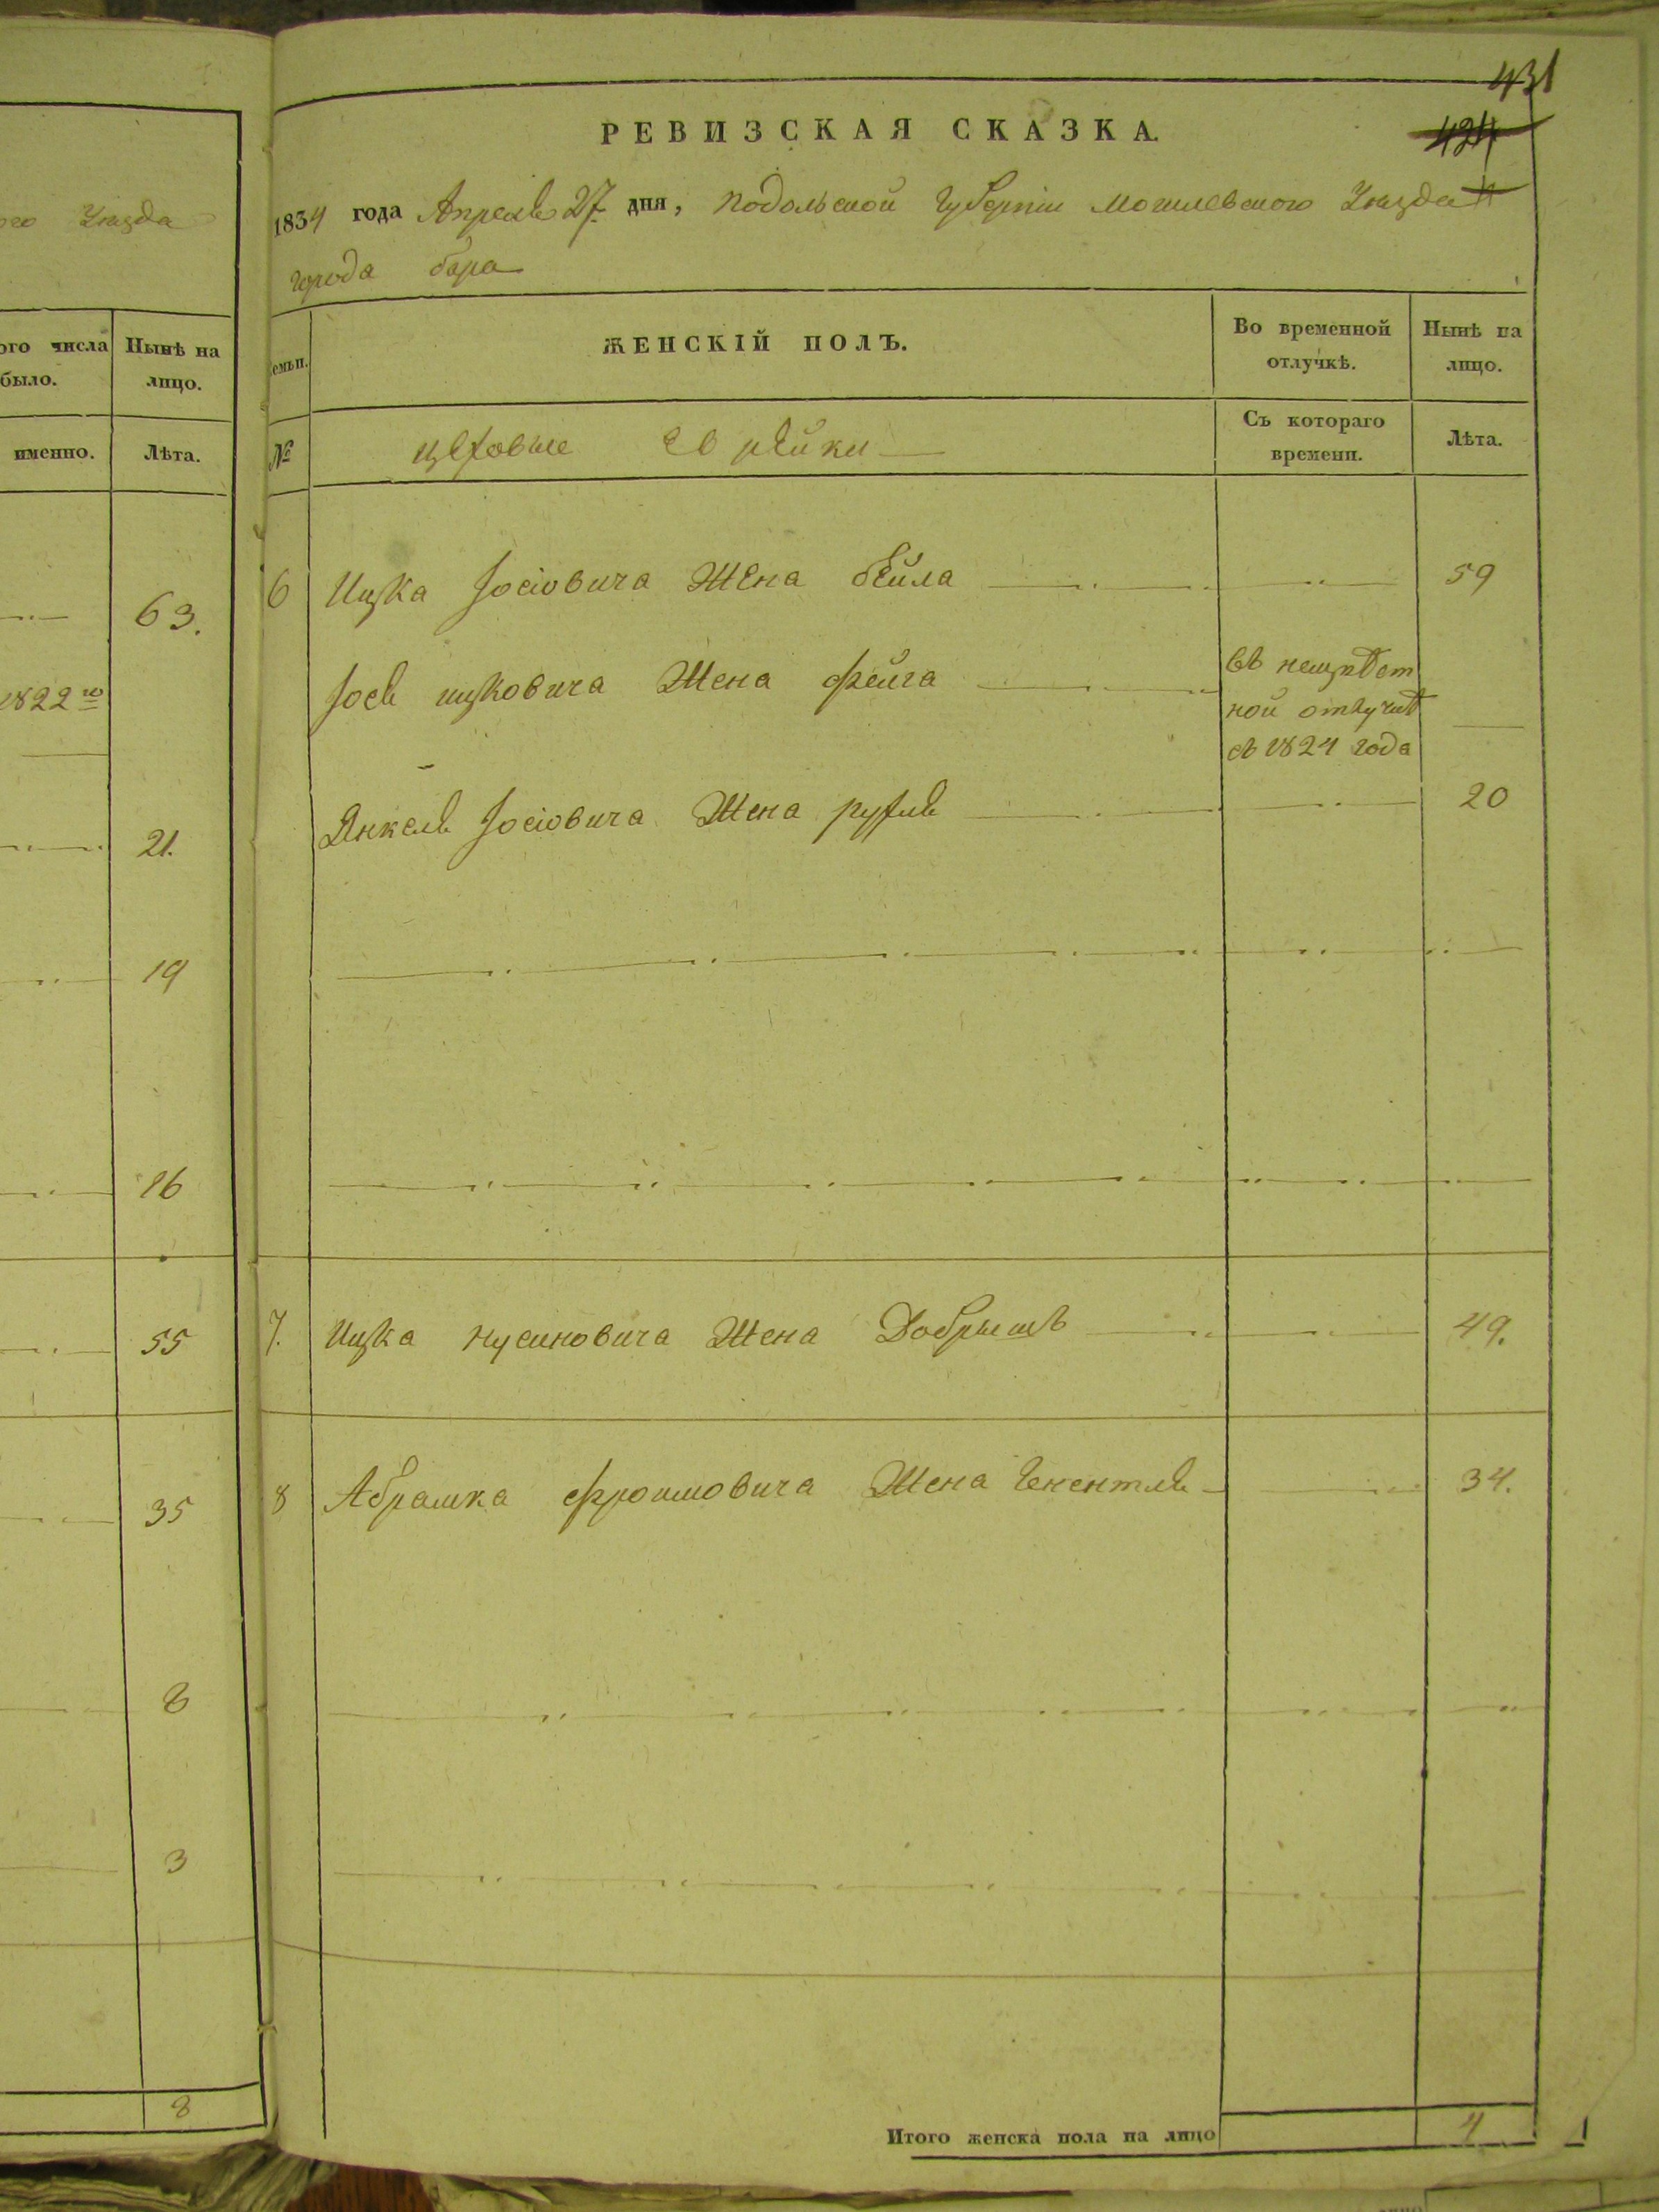 ого Уезда
ого числа было.
Нынѣ на лицо.
именно.
Лѣта.
63.
1822 го
21.
19
16
55
35
8
3
8
431
424
РЕВИЗСКАЯ СКАЗКА.
1834 года Апреля 27 дня, Подольской Губернiи Могилевского Уезда
города бара
Семьи.
ЖЕНСКIЙ ПОЛЪ.
Во временной отлучкѣ.
Нынѣ на лицо.
№
цеховые Еврейки
Съ котораго времени.
Лѣта.
6 Ицка Iосiовича Жена бейла 59
Iося ицковича Жена фейга
въ
ной отлучке
съ 1824 года
Янкеля Iосiовича Жена рухля 20
7. Ицка нусиновича Жена Добрышъ 49.
8 Абрамка фроимовича Жена Генентля 34.
Итого женска пола на лицо 4